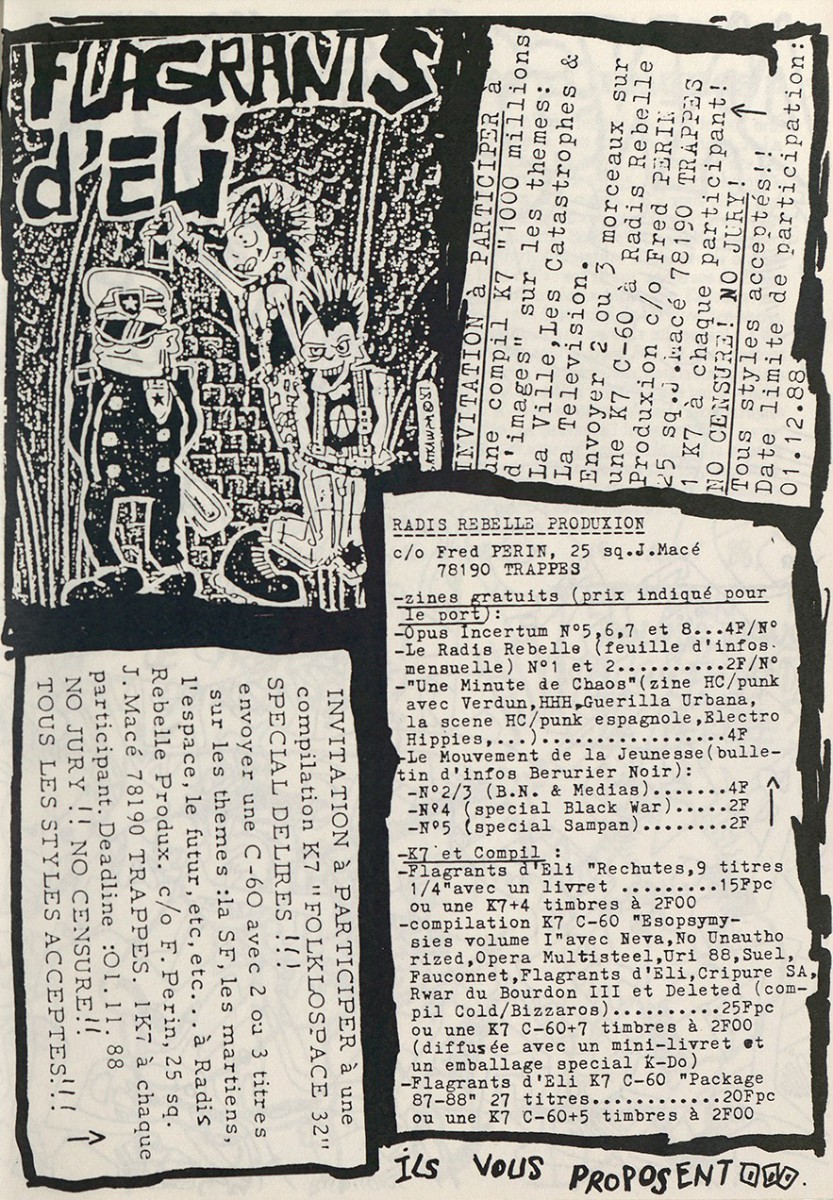 FLAGRANTS
d'ELi
INVITATION à PARTICIPER à
une compil K7 "1000 millions
d'images" sur les themes:
La Ville,Les Catastrophes &
La Television.
Envoyer 2 ou 3 morceaux sur
une K7 C-60 à Radis Rebelle
Produxion c/o Fred PERIN
25 sq.J.Macé 78190 TRAPPES
1 K7 à chaque participant!
NO CENSURE! NO JURY!
Tous styles acceptés!!
Date limite de participation:
01.12.88
RADIS REBELLE PRODUXION
c/o Fred PERIN, 25 sq.J.Macé
78190 TRAPPES
-zines gratuits (prix indiqué pour
le port):
-Opus Incertum N°5,6,7 et 8...4F/N°
-Le Radis Rebelle (feuille d'infos
mensuelle) N°1 et 2..........2F/N°
-"Une Minute de Chaos"(zine HC/punk
avec Verdun,HHH,Guerilla Urbana,
la scene HC/punk espagnole,Electro
Hippies,...).................4F
-Le Mouvement de la Jeunesse(bulle-
tin d'infos Berurier Noir):
-N°2/3 (B.N. & Medias).......4F
-N°4 (special Black War).....2F
-N°5 (special Sampan)........2F
-K7 et Compil :
-Flagrants d'Eli "Rechutes,9 titres
1/4"avec un livret .........15Fpc
ou une K7+4 timbres à 2F00
-compilation K7 C-60 "Esopsymy-
sies volume I"avec Neva,No Unautho
rized,Opera Multisteel,Uri 88,Suel,
Fauconnet,Flagrants d'Eli,Cripure SA,
Rwar du Bourdon III et Deleted (com-
pil Cold/Bizzaros)..........25Fpc
ou une K7 C-60+7 timbres à 2F00
(diffusée avec un mini-livret et
un emballage special K-Do)
-Flagrants d'Eli K7 C-60 "Package
87-88" 27 titres............20Fpc
ou une K7 C-60+5 timbres à 2F00
INVITATION à PARTICIPER à une
compilation K7 "FOLKLOSPACE 32"
SPECIAL DELIRES !!!
envoyer une C-60 avec 2 ou 3 titres
sur les themes :la SF, les martiens,
l'espace, le futur, etc, etc... à Radis
Rebelle Produx. c/o F. Perin, 25 sq.
J. Macé 78190 TRAPPES. 1K7 à chaque
participant. Deadline :01.11. 88
NO JURY !! NO CENSURE!!
TOUS LES STYLES ACCEPTES!!!
iLS VOUS PROPOSENT...